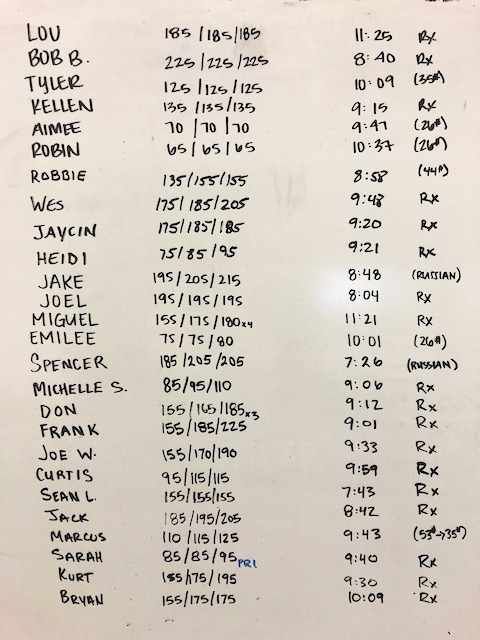 LOU 185/185/185 11:25 Rx
BOB B. 225/225/225 8:40 Rx
TYLER 125/125/125 10:09 (35#)
KELLEN 135/135/135 9:15 Rx
AIMEE 70/70/70 9:47 (26#)
ROBIN 65/65/65 10:37 (26#)
ROBBIE 135/155/155 8:58 (44#)
WES 175/185/205 9:48 Rx
JAYCIN 175/185/185 9:20 Rx
HEIDI 75/85/95 9:21 Rx
JAKE 195/205/215 8:48 (RUSSIAN)
JOEL 195/195/195 8:04 Rx
MIGUEL 155/175/180x4 11:21 Rx
EMILEE 75/75/80 10:01 (26#)
SPENCER 185/205/205 7:26 (RUSSIAN)
MICHELLE S. 85/95/110 9:06 Rx
DON 155/165/185x3 9:12 Rx
FRANK 155/185/225 9:01 Rx
JOE W. 155/170/190 9:33 Rx
CURTIS 95/115/115 9:59 Rx
SEAN L. 155/155/155 7:43 Rx
JACK 185/195/205 8:42 Rx
MARCUS 110/115/125 9:43 (53#→35#)
SARAH 85/85/95 PR! 9:40 Rx
KURT 155/175/195 9:30 Rx
BRYAN 155/175/175 10:09 Rx